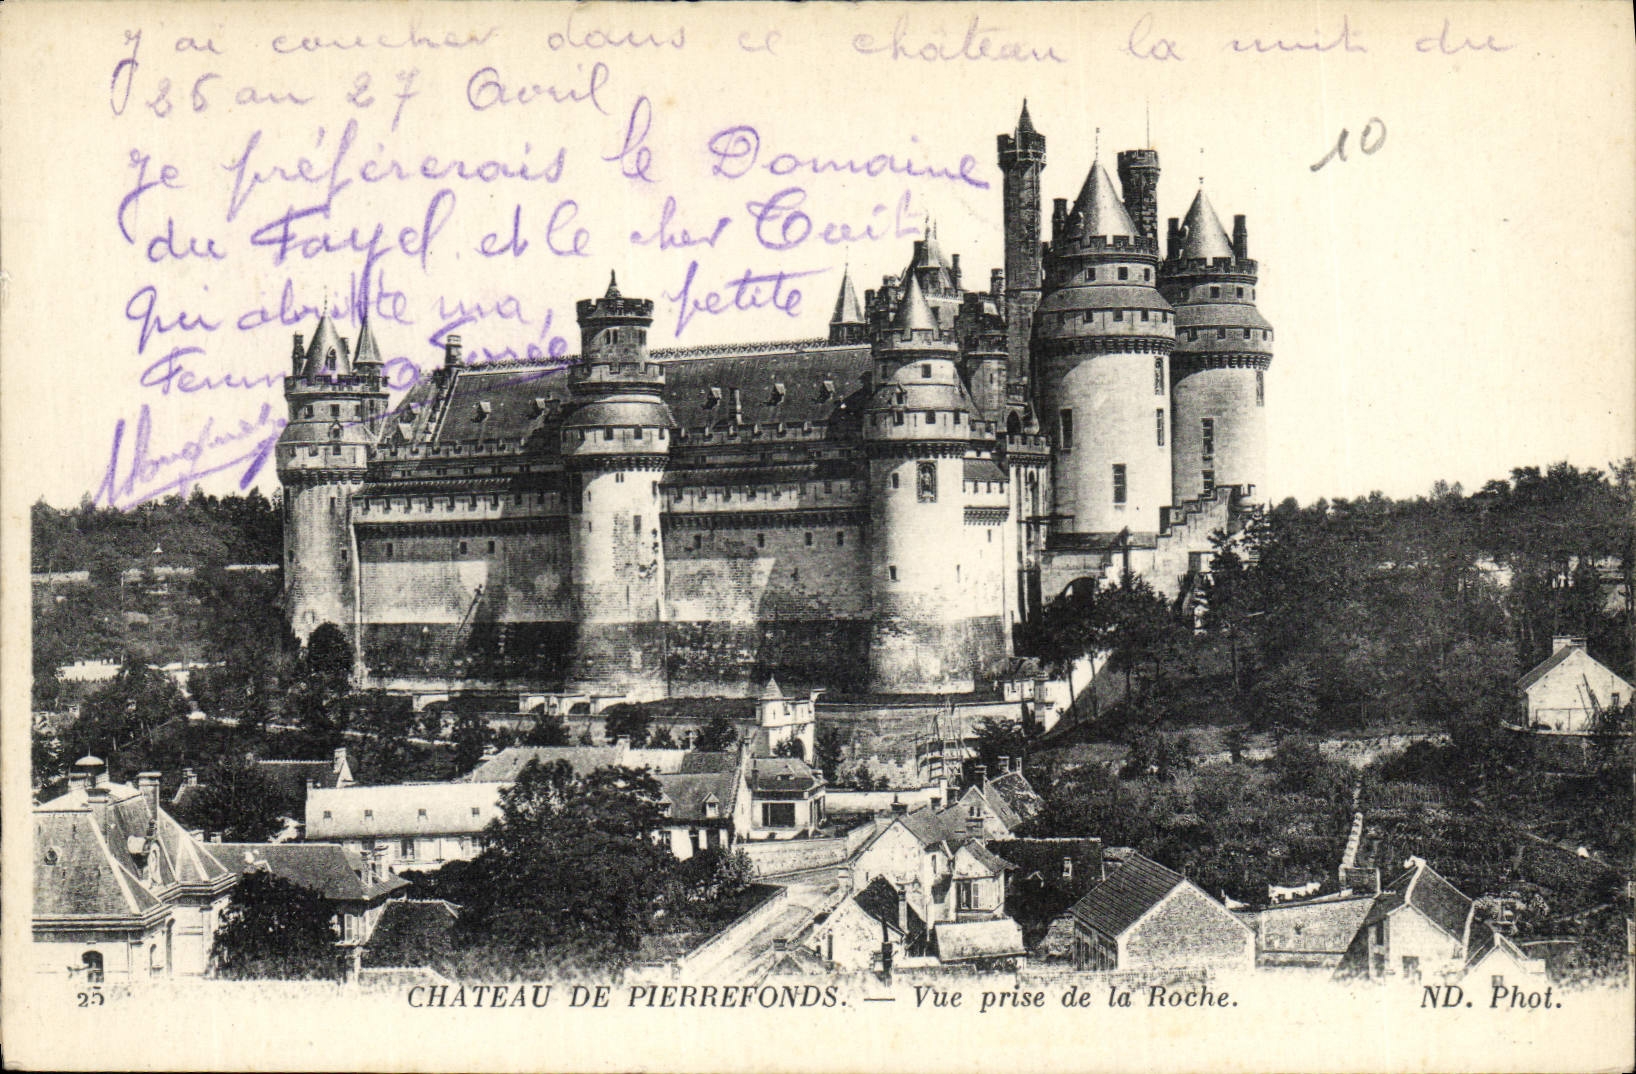 J'ai coucher dans ce château la nuit du
26 au 27 Avril
Je préférerais le Domaine
du Fayel et le cher Toit
qui abritte ma petite
Femme adorée
10
25
CHATEAU DE PIERREFONDS. — Vue prise de la Roche.
ND. Phot.